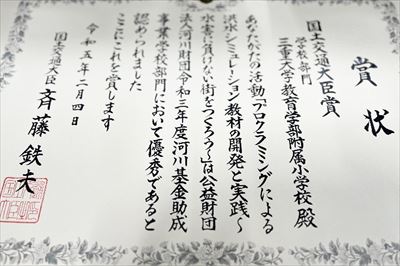 賞状
国土交通大臣賞
学校部門
三重大学教育学部附属小学校 殿
あなたがたの活動「プログラミングによる
洪水シミュレーション教材の開発と実践~
水害に負けない街をつくろう~」は公益財団
法人河川財団令和三年度河川基金助成
事業学校部門において優秀であると
認められました
ここにこれを賞します
令和五年二月四日
国土交通大臣 斉藤鉄夫